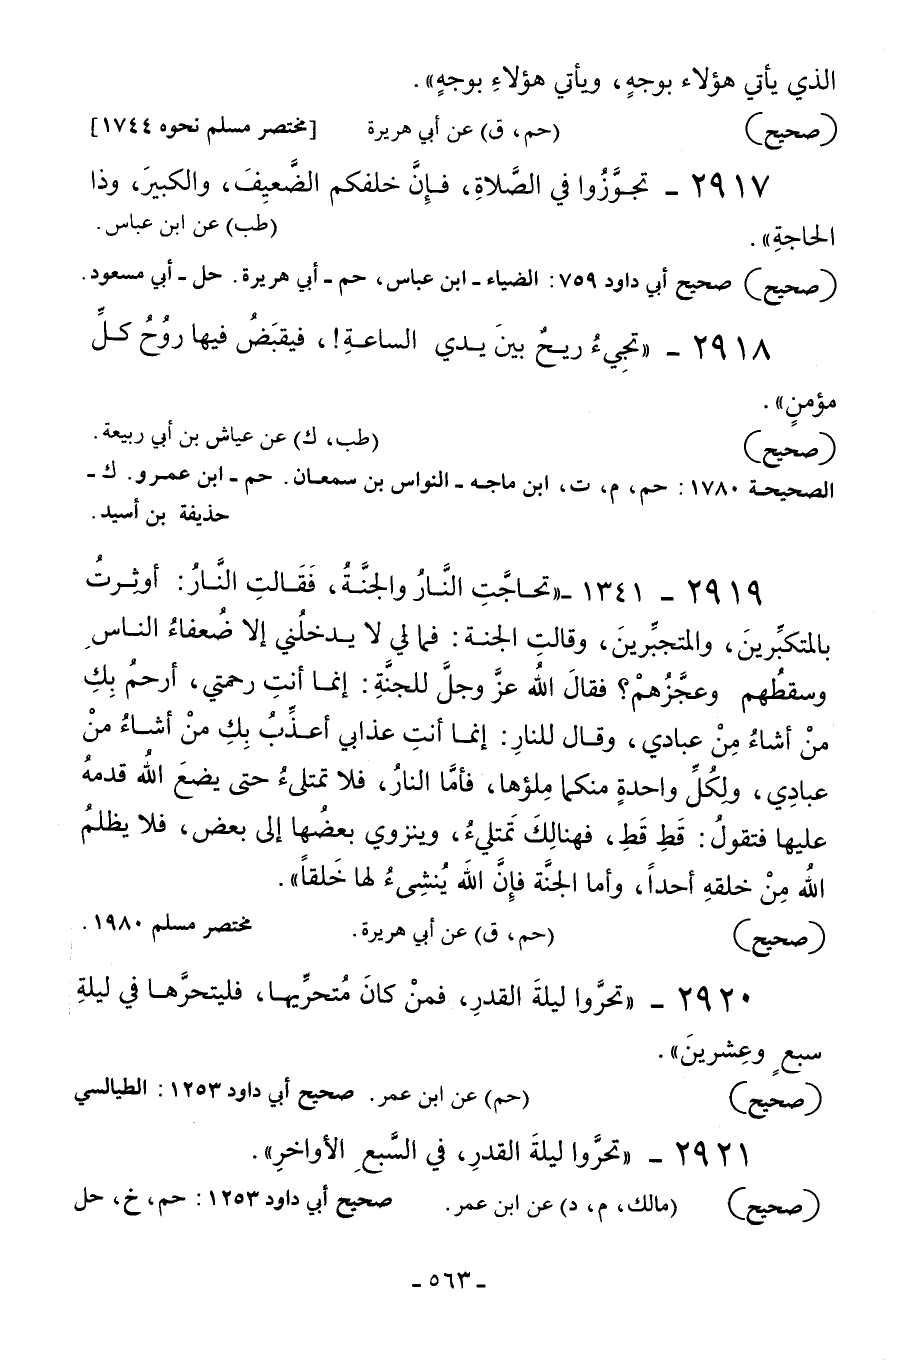 الذي يأتي هؤلاء بوجهٍ، ويأتي هؤلاءِ بوجهٍ».
(صحيح) (حم، ق) عن أبي هريرة [مختصر مسلم نحوه ١٧٤٤]
٢٩١٧ ـ تجوَّزُوا في الصَّلاةِ، فإنَّ خلفكم الضَّعيفَ، والكبيرَ، وذا
الحاجةِ». (طب) عن ابن عباس.
(صحيح) صحيح أبي داود ٧٥٩: الضياء ـ ابن عباس، حم ـ أبي هريرة. حل ـ أبي مسعود.
٢٩١٨ ـ «تجِيءُ ريحٌ بينَ يدي الساعةِ!، فيقبَضُ فيها روُحُ كلِّ
مؤمنٍ».
(صحيح) (طب، ك) عن عياش بن أبي ربيعة.
الصحيحة ١٧٨٠: حم، م، ت، ابن ماجه ـ النواس بن سمعان. حم ـ ابن عمرو. ك ـ
حذيفة بن أسيد.
٢٩١٩ ـ ١٣٤١ ـ«تحاجَّتِ النَّارُ والجنَّةُ، فَقَالتِ النَّارُ: أوثِرتُ
بالمتكبِّرينَ، والمتجبِّرينَ، وقالتِ الجنة: فما لي لا يدخلُني إلا ضُعفاءُ الناسِ
وسقطُهم وعجَّزُهمْ؟ فقالَ اللهُ عزَّ وجلَّ للجنَّة: إنما أنتِ رحمتي، أرحمُ بِكِ
منْ أشاءُ مِنْ عبادي، وقال للنارِ: إنما أنتِ عذابي أعذِّبُ بِكِ منْ أشاءُ منْ
عبادِي، ولِكُلِّ واحدةٍ منكما مِلؤها، فأمَّا النارُ، فلا تمتلىءُ حتى يضعَ اللهُ قدمهُ
عليها فتقولُ: قَطِ قَطِ، فهنالِكَ تَمتلِيءُ، وينزوي بعضُها إلى بعض، فلا يظلمُ
اللهُ مِنْ خلقهِ أحداً، وأما الجنَّة فإنَّ اللهَ يُنشِىءُ لها خَلقاً».
(صحيح) (حم، ق) عن أبي هريرة. مختصر مسلم ١٩٨٠.
٢٩٢٠ ـ «تحرَّوا ليلةَ القدرِ، فمنْ كانَ مُتحرِّيها، فليتحرَّها في ليلةِ
سبعٍ وعِشرينَ».
(صحيح) (حم) عن ابن عمر. صحيح أبي داود ١٢٥٣: الطيالسي
٢٩٢١ ـ «تحرَّوا ليلةَ القدرِ، في السَّبعِ الأواخرِ».
(صحيح) (مالك، م، د) عن ابن عمر. صحيح أبي داود ١٢٥٣: حم، خ، حل
ـ ٥٦٣ ـ